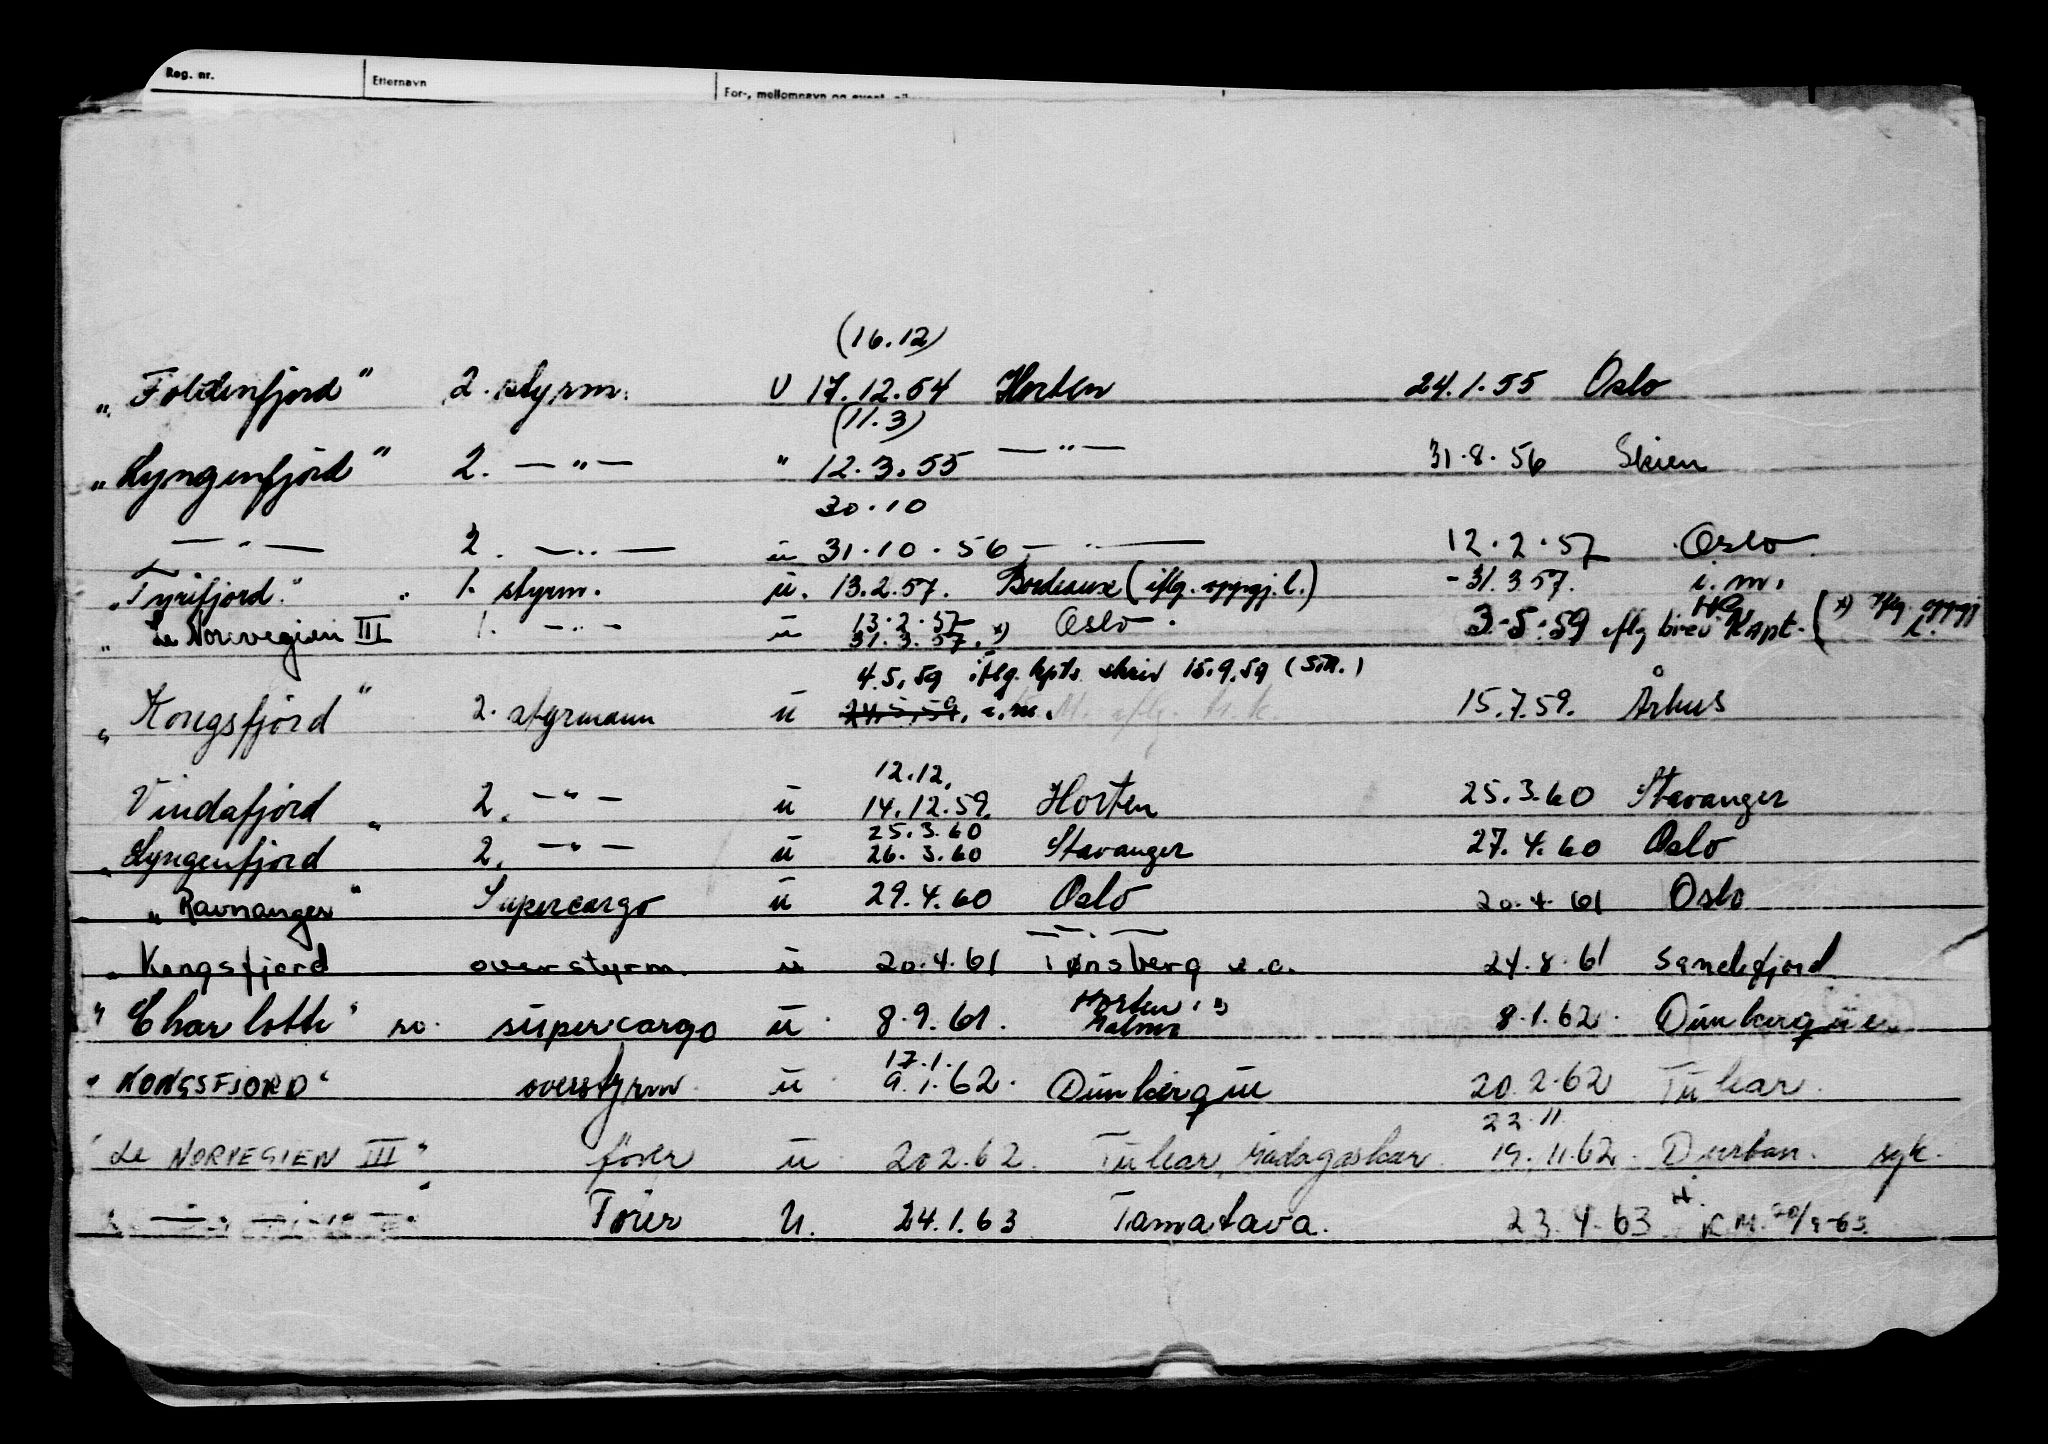 Reg. nr. Etternavn For-, mellomnavn og event.
(16.12)
„Foldenfjord" 2. styrm. U 17.12.54 Horten 24.1.55 Oslo
(11.3)
„Lyngenfjord" 2. — " — " 12.3.55 — " — 31.8.56 Skien
30.10
— " — 2. — " — u 31.10.56 — " — 12.2.57 Oslo
„Tyrifjord" 1. styrm. u. 13.2.57. Bordeaux (iflg. oppgj. l.) -31.3.57. i.m.
13.2.57
„Le Norvegien III 1. — " — u 31.3.57. x) Oslo. 3.5.59 iflg brev Kapt. (x) iflg. oppgj l.
4.5.59 iflg. kpts skriv 15.9.59
„Kongsfjord" 2. styrmann u 24.5.59. i.m. 15.7.59. Århus
12.12.
Vindafjord 2. — " — u 14.12.59. Horten 25.3.60 Stavanger
25.3.60
„Lyngenfjord 2. — " — u 26.3.60 Stavanger 27.4.60 Oslo
„Ravnanger" Supercargo u 29.4.60 Oslo 20.4.61 Oslo
— " —
„Kongsfjord overstyrm. u 20.4.61 Tønsberg 24.8.61 Sandefjord
Horten
"Charlotte" supercargo u 8.9.61. Malmø 8.1.62. Dünkerque
17.1.
"KONGSFJORD" overstyrm. u 9.1.62. Dünkerque 20.2.62 Tulear.
22.11
"Le NORVEGIEN III" fører u 20.2.62. Tulear, Madagaskar 19.11.62. Durban. syk.
— " — Fører U. 24.1.63 Tamatava. 23.4.63 K.M.